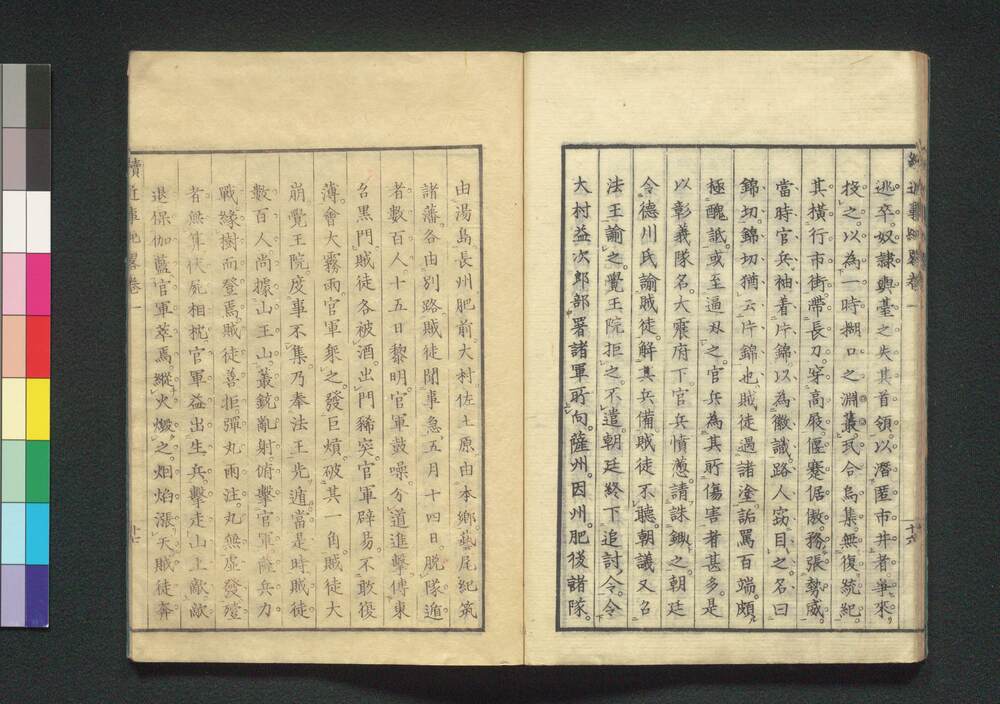 逃卒奴隷輿臺之失其首領以潛匿市井者爭來
投之以為一時糊口之淵叢瓦合烏集無復統紀
其橫行市街帶長刀穿高屐偃蹇倨傲務張勢威
當時官兵袖着片錦以為徽識路人竊目之名曰
錦切錦切猶云片錦也賊徒過諸塗詬罵百端頗
極醜詆或至逼刃之官兵為其所傷害者甚多是
以彰義隊名大襄府下官兵憤懣請誅鋤之朝廷
令德川氏諭賊徒解其兵備賊徒不聽朝議又召
法王諭之覺王院拒之不遣朝廷終下追討令令
大村益次郎部署諸軍所向薩州因州肥後諸隊
續近事紀畧卷一
十六
由湯島長州肥前大村佐土原由本鄉藝尾紀筑
諸藩各由別路賊徒聞事急五月十四日脫隊遁
者數百人十五日黎明官軍鼓噪分道進擊傳東
台黑門賊徒各被酒出門稀突官軍辟易不敢復
薄會大霧雨官軍衆之發巨熕破其一角賊徒大
崩覺王院度事不集乃奉法王先遁當是時賊徒
數百人尚據山王山叢銃亂射俯擊官軍薩兵力
戰緣樹而登焉賊徒善拒彈丸雨注丸無虛發殪
者無算伏屍相枕官軍益出生兵擊走山上敵敵
退保伽藍官軍萃焉縱火燬之烟焰漲天賊徒奔
續近事紀畧卷一
十七